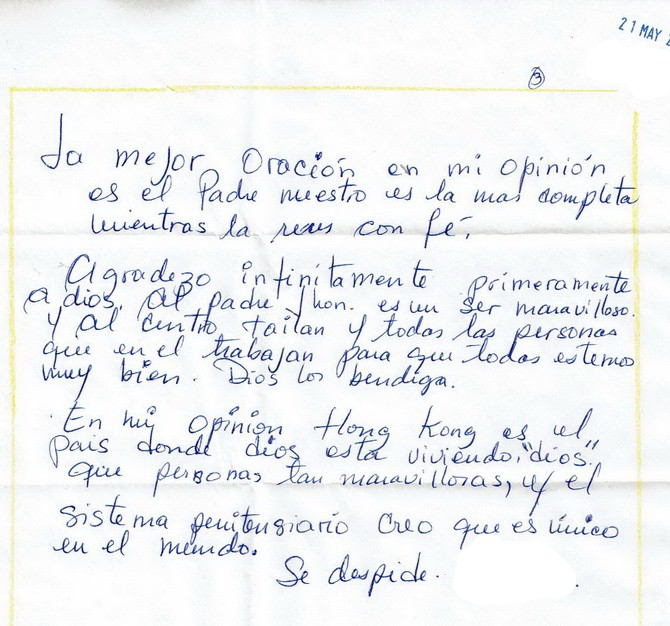 21 MAY
3
La mejor Oración en mi opinión
es el Padre nuestro es la mas completa
mientras la reces con fé.
Agradezo infinitamente primeramente
a dios. al padre Jhon. es un ser maravilloso.
y al centro tailan y todas las personas
que en el trabajan para que todas estemos
muy bien. Dios los bendiga.
En mi opinion Hong Kong es el
pais donde dios esta viviendo, "dios".
que personas tan maravillosas, y el
sistema penitensiario creo que es único
en el mundo.
Se despide.